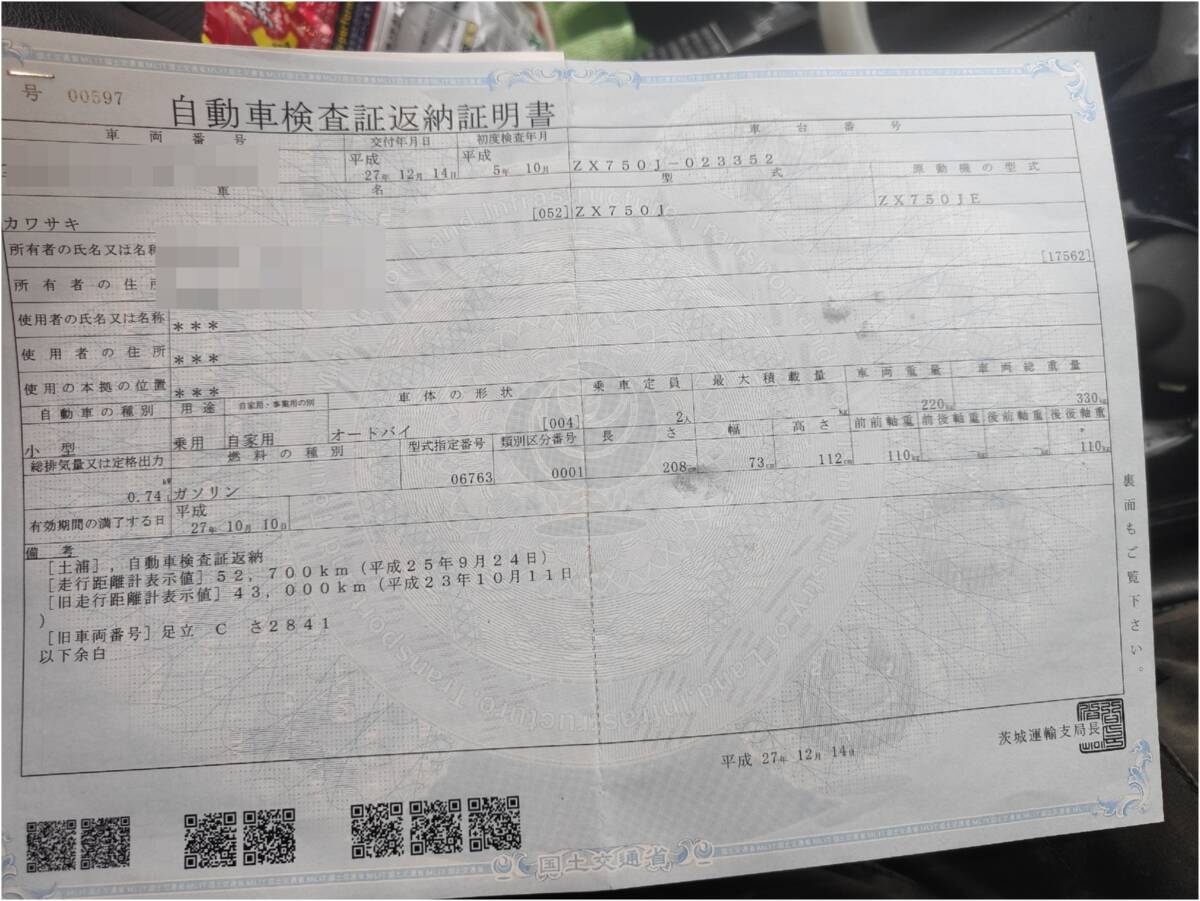 号 00597
自動車検査証返納証明書
車両番号 交付年月日 初度検査年月 車台番号
平成 27年 12月 14日 平成 5年 10月 ZX750J-023352
車名 型式 原動機の型式
カワサキ [052] ZX750J ZX750JE
所有者の氏名又は名称
所有者の住所 [17562]
使用者の氏名又は名称 ***
使用者の住所 ***
使用の本拠の位置 ***
自動車の種別 用途 自家用・事業用の別 車体の形状 乗車定員 最大積載量 車両重量 車両総重量
小型 乗用 自家用 オートバイ [004] 2人 -kg 220kg 330kg
総排気量又は定格出力 燃料の種別 型式指定番号 類別区分番号 長さ 幅 高さ 前前軸重 前後軸重 後前軸重 後後軸重
0.74 ガソリン 06763 0001 208cm 73cm 112cm 110kg - - 110kg
有効期間の満了する日 平成 27年 10月 10日
備考
[土浦],自動車検査証返納
[走行距離計表示値]52,700km(平成25年9月24日)
[旧走行距離計表示値]43,000km(平成23年10月11日
)
[旧車両番号]足立 C さ2841
以下余白
裏面もご覧下さい。
平成 27年 12月 14日
茨城運輸支局長
国土交通省